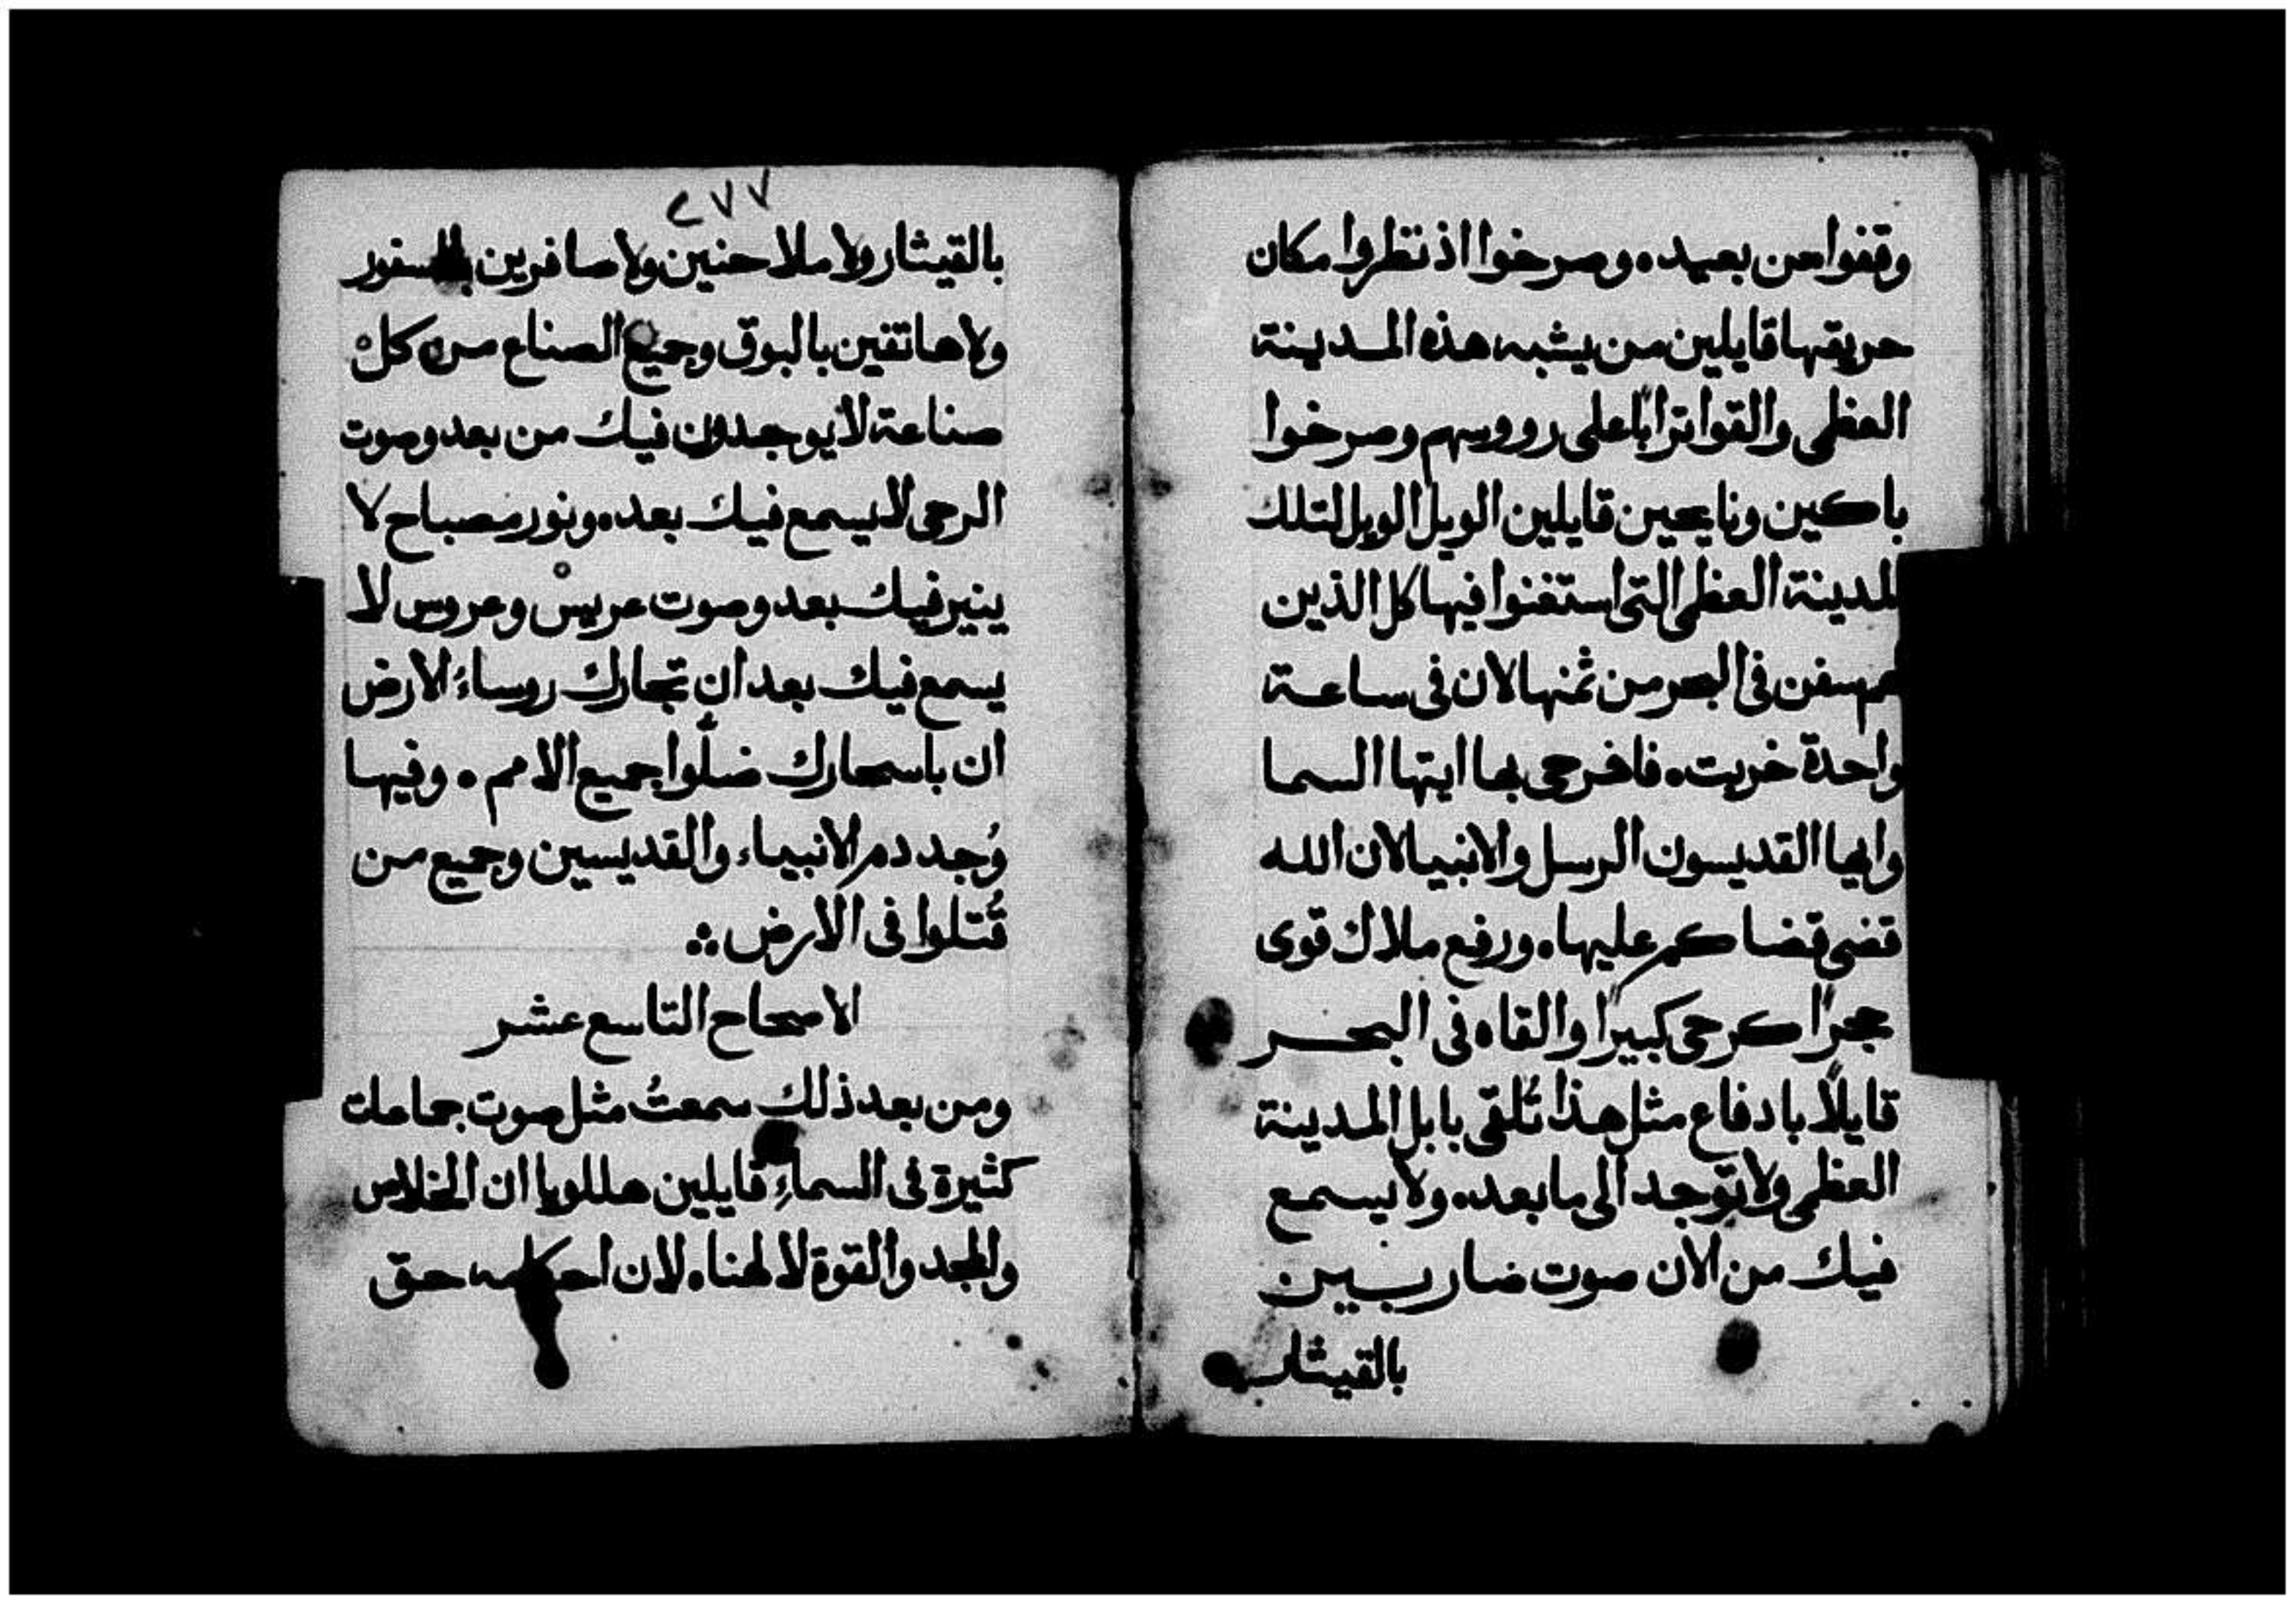 وقفوا من بعيد ٥ وصرخوا اذ نظروا مكان
حريقها قايلين من يشبه هذه المدينة
العظمى والقوا ترابًا على رووسهم وصرخوا
باكين ونايحين قايلين الويل الويل لتلك
المدينة العظمى التى استغنوا فيها كل الذين
لهم سفن فى البحر من ثمنها لان فى ساعة
واحدة خربت ٥ فافرحى بها ايتها السما
وايها القديسون الرسل والانبيا لان الله
قضى قضاكم عليها ٥ ورفع ملاك قوى
حجرًا كرحى كبيرًا والقاه فى البحر
قايلًا بادفاع مثل هذا تُلقى بابل المدينة
العظمى ولا توجد الى ما بعد ٥ ولا يسمع
فيك من الان صوت ضاربين
بالقيثار
٢٧٧
بالقيثار ولا ملاحنين ولا صافرين بالسفور
ولا هاتفين بالبوق وجميع الصناع من كل
صناعة لا يوجدون فيك من بعد وصوت
الرحى لا يسمع فيك بعد ٥ ونور مصباح لا
ينير فيك بعد وصوت عريس وعروس لا
يسمع فيك بعد ان تجارك روساءُ الارض
ان باسحارك ضلّوا جميع الامم ٥ وفيها
وُجد دم الانبياء والقديسين وجميع من
قُتلوا فى الارض ∴
الاصحاح التاسع عشر
ومن بعد ذلك سمعتُ مثل صوت جماعات
كثيرة فى السماءِ قايلين هللويا ان الخلاص
والمجد والقوة لالهنا ٥ لان احكامه حق